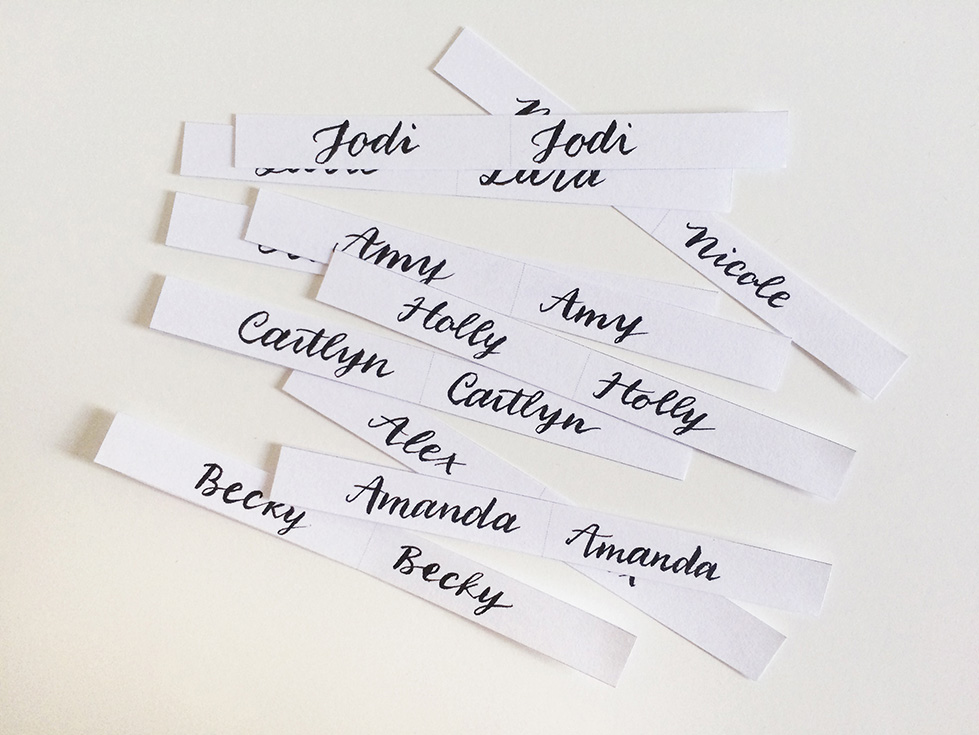 Jodi Jodi
Lara
Nicole
Amy Amy
Holly Holly
Caitlyn Caitlyn
Alex
Amanda Amanda
Becky Becky